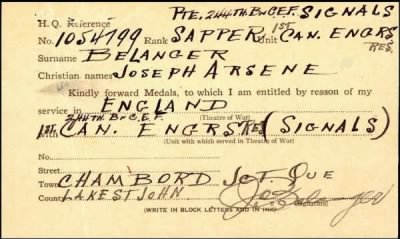 PTE. 244TH BN C.E.F. SIGNALS
H. Q. Reference
No. 1054799 Rank SAPPER Unit 1ST CAN. ENGRS
RES.
Surname BELANGER
Christian names JOSEPH ARSENE
Kindly forward Medals, to which I am entitled by reason of my
service in ENGLAND
244TH BN C.E.F. (Theatre of War)
1ST CAN. ENGRS RES (SIGNALS)
(Unit with which served in Theatre of War)
No.
Street
Town CHAMBORD JCT. QUE
County LAKE ST JOHN
(Signature)
(WRITE IN BLOCK LETTERS AND IN INK)